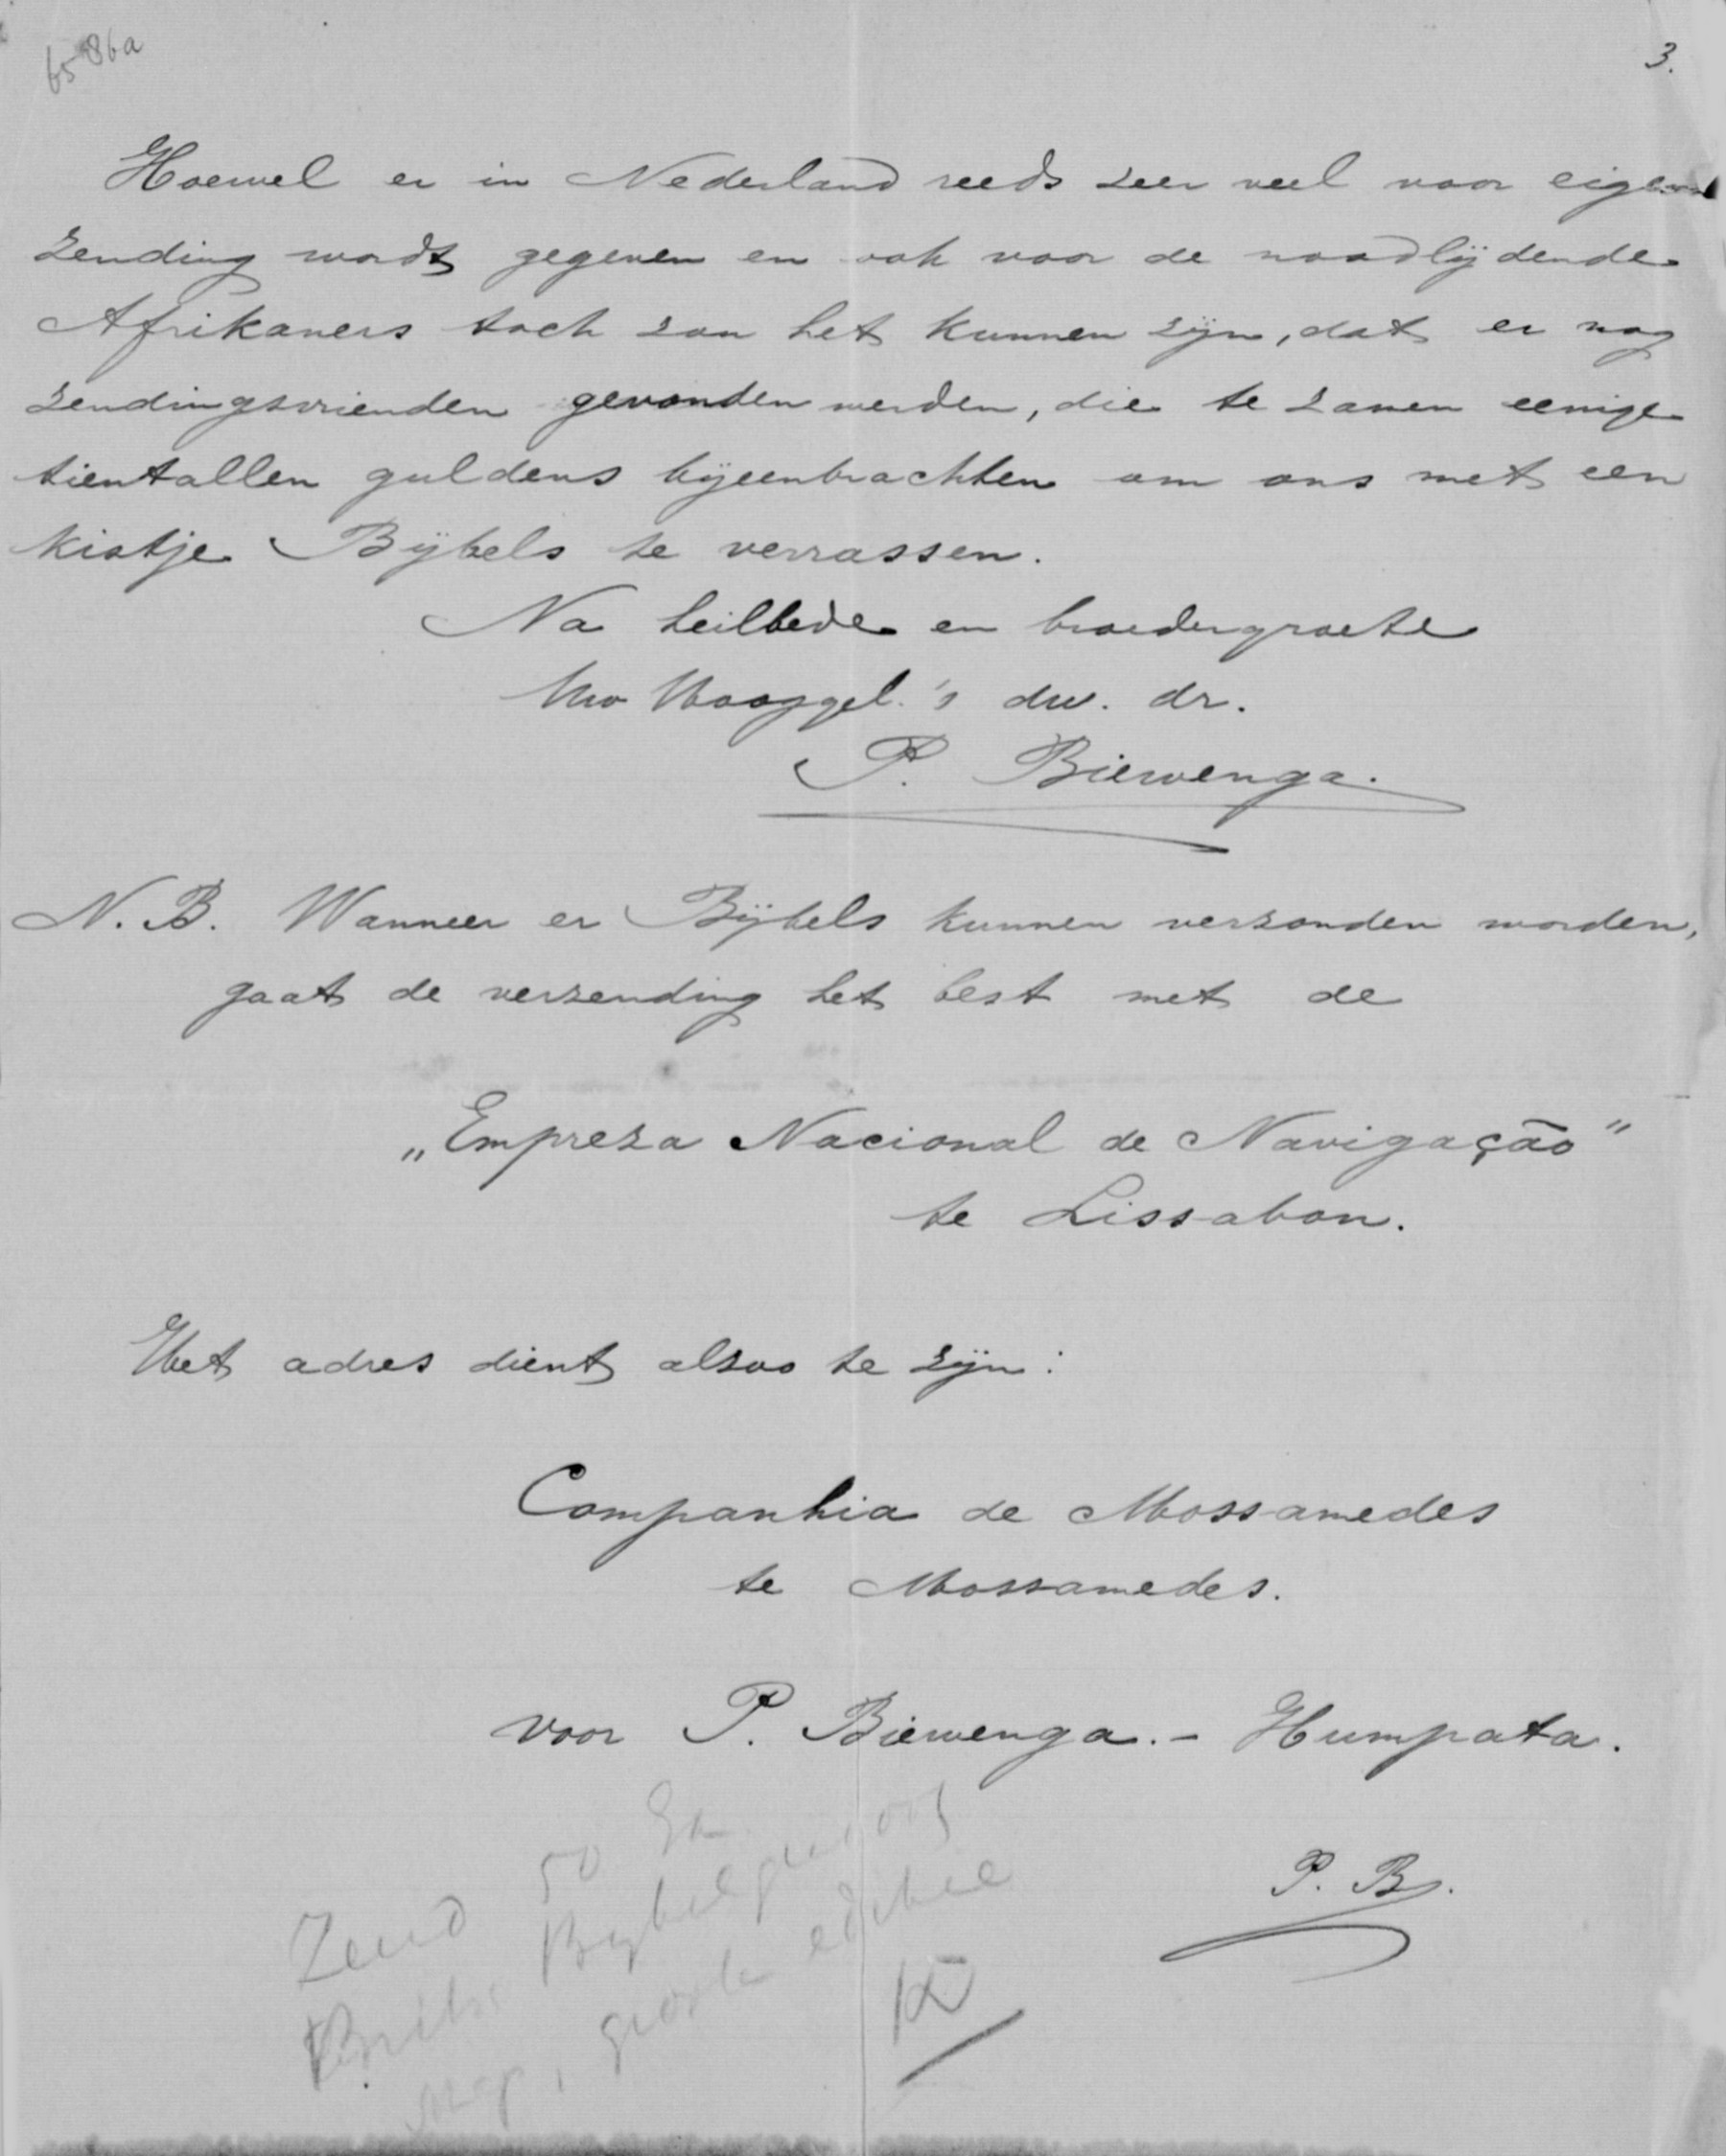 6586a
3.
Hoewel er in Nederland reeds zeer veel voor eigen
zending wordt gegeven en ook voor de noodlijdende
Afrikaners toch zou het kunnen zijn, dat er nog
zendingsvrienden gevonden werden, die te zamen eenige
tientallen guldens bijeenbrachten om ons met een
kistje Bijbels te verrassen.
Na heilbede en broedergroete
Uw Hooggel.'s dw. dr.
P. Biewenga.
N.B. Wanneer er Bijbels kunnen verzonden worden,
gaat de verzending het best met de
„Empreza Nacional de Navigação"
te Lissabon.
Het adres dient alzoo te zijn:
Companhia de Mossamedes
te Mossamedes.
voor P. Biewenga. - Humpata.
P. B.
Zend 50 Ex
Bijbelgenoots
groote editie